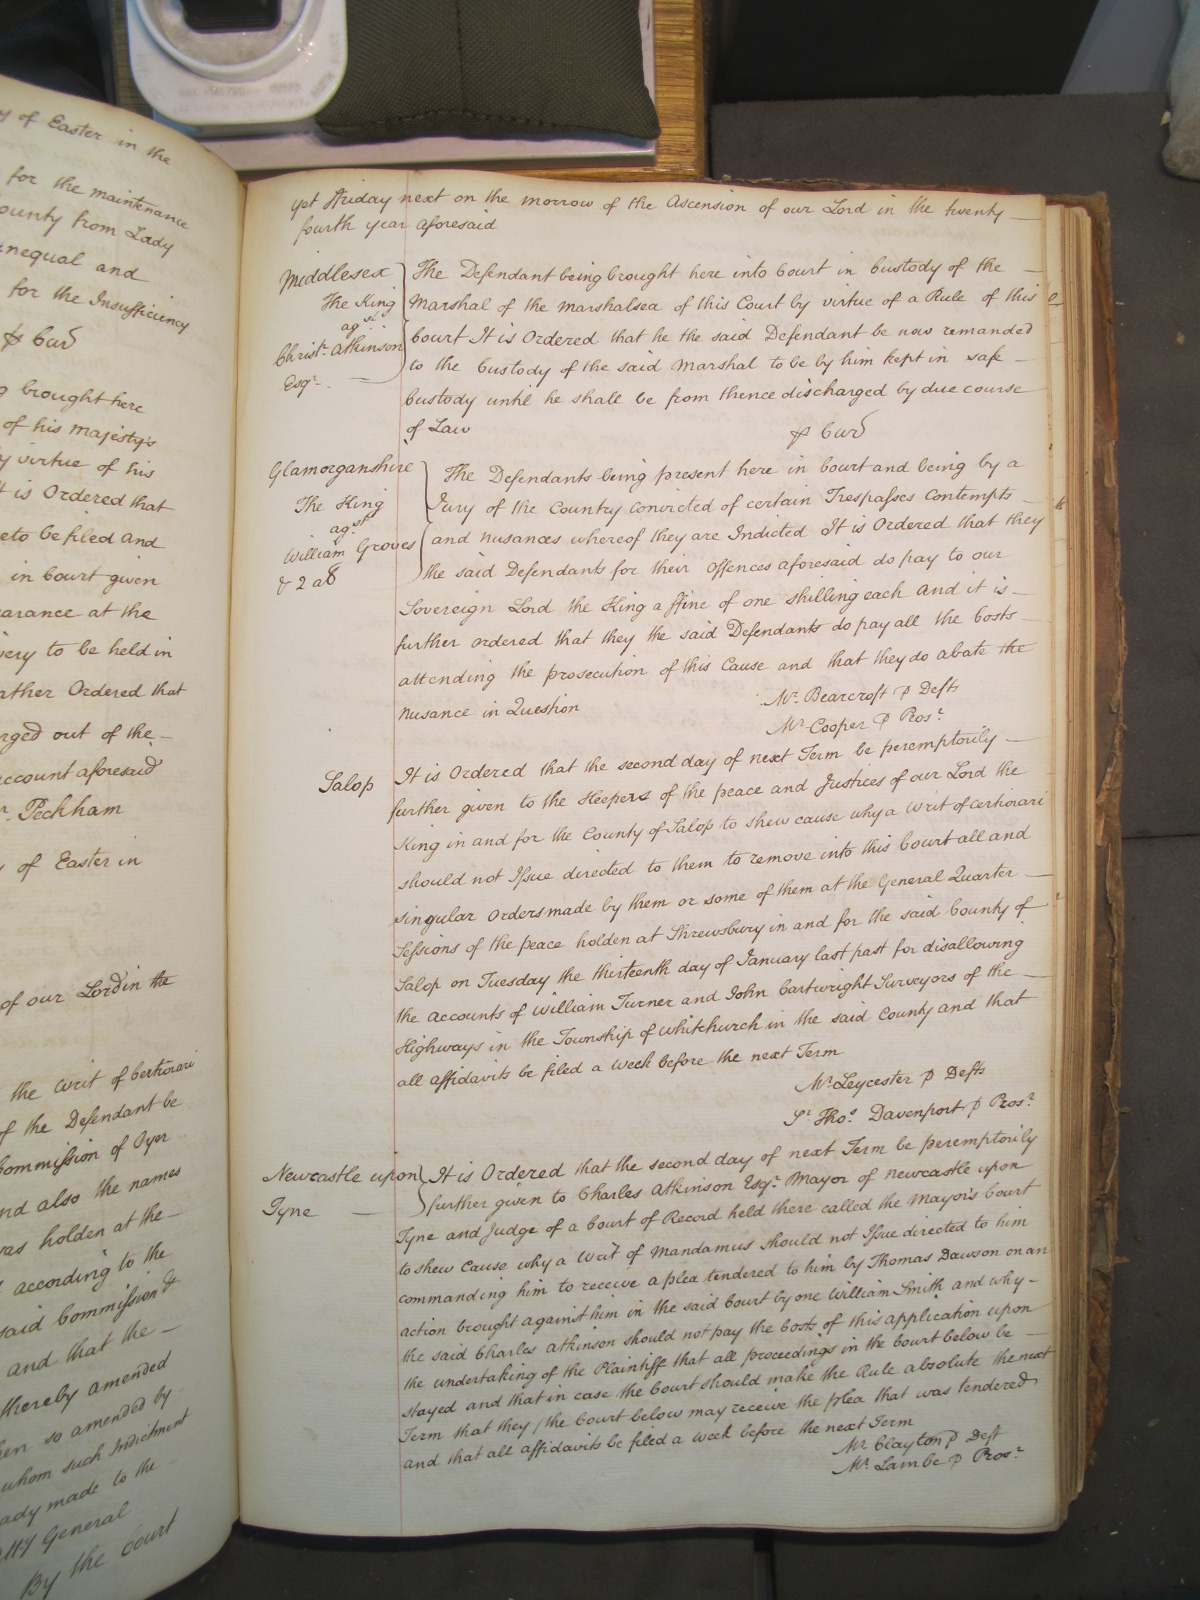 y of Easter in the
for the maintenance
ounty from Lady
nequal and
for the Insufficiency
& Cur
g brought here
of his Majesty's
y virtue of his
t is Ordered that
eto be filed and
in Court given
earance at the
very to be held in
ather Ordered that
rged out of the
account aforesaid
r. Peckham
y of Easter in
of our Lord in the
the Writ of Certiorari
of the Defendant be
Commission of Oyer
nd also the names
was holden at the
according to the
said Commission &
and that the
thereby amended
en so amended by
whom such Indictment
ady made to the
tty General
By the Court
yet Friday next on the morrow of the Ascension of our Lord in the twenty
fourth year aforesaid
Middlesex
The King
agst.
Christr. Atkinson
Esqr.
The Defendant being brought here into Court in Custody of the
Marshal of the Marshalsea of this Court by virtue of a Rule of this
Court It is Ordered that he the said Defendant be now remanded
to the Custody of the said Marshal to be by him kept in safe
Custody until he shall be from thence discharged by due course
of Law
& Cur
Glamorganshire
The King
agst.
William Groves
& 2 as
The Defendants being present here in Court and being by a
Jury of the Country convicted of certain Trespasses Contempts
and Nusances whereof they are Indicted It is Ordered that they
the said Defendants for their Offences aforesaid do pay to our
Sovereign Lord the King a ffine of one shilling each and it is
further ordered that they the said Defendants do pay all the Costs
attending the prosecution of this Cause and that they do abate the
Nusance in Question
Mr. Bearcroft p Defts
Mr. Cooper p Prosr.
Salop
It is Ordered that the second day of next Term be peremptorily
further given to the Keepers of the peace and Justices of our Lord the
King in and for the County of Salop to shew cause why a Writ of Certiorari
should not Issue directed to them to remove into this Court all and
singular Orders made by them or some of them at the General Quarter
Sessions of the peace holden at Shrewsbury in and for the said County of
Salop on Tuesday the thirteenth day of January last past for disallowing
the accounts of William Turner and John Cartwright Surveyors of the
Highways in the Township of Whitchurch in the said County and that
all affidavits be filed a week before the next Term
Mr. Leycester p Defts
Sr. Thos. Davenport p Prosr.
Newcastle upon
Tyne
It is Ordered that the second day of next Term be peremptorily
further given to Charles Atkinson Esqr. Mayor of Newcastle upon
Tyne and Judge of a Court of Record held there called the Mayor's Court
to shew Cause why a Writ of Mandamus should not Issue directed to him
commanding him to receive a plea tendered to him by Thomas Dawson on an
action brought against him in the said Court by one William Smith and why
the said Charles Atkinson should not pay the Costs of this application upon
the undertaking of the Plaintiff that all proceedings in the Court below be
stayed and that in case the Court should make the Rule absolute the next
Term that they / the Court below may receive the plea that was tendered
and that all affidavits be filed a week before the next Term
Mr. Clayton p Deft
Mr. Lambe p Prosr.